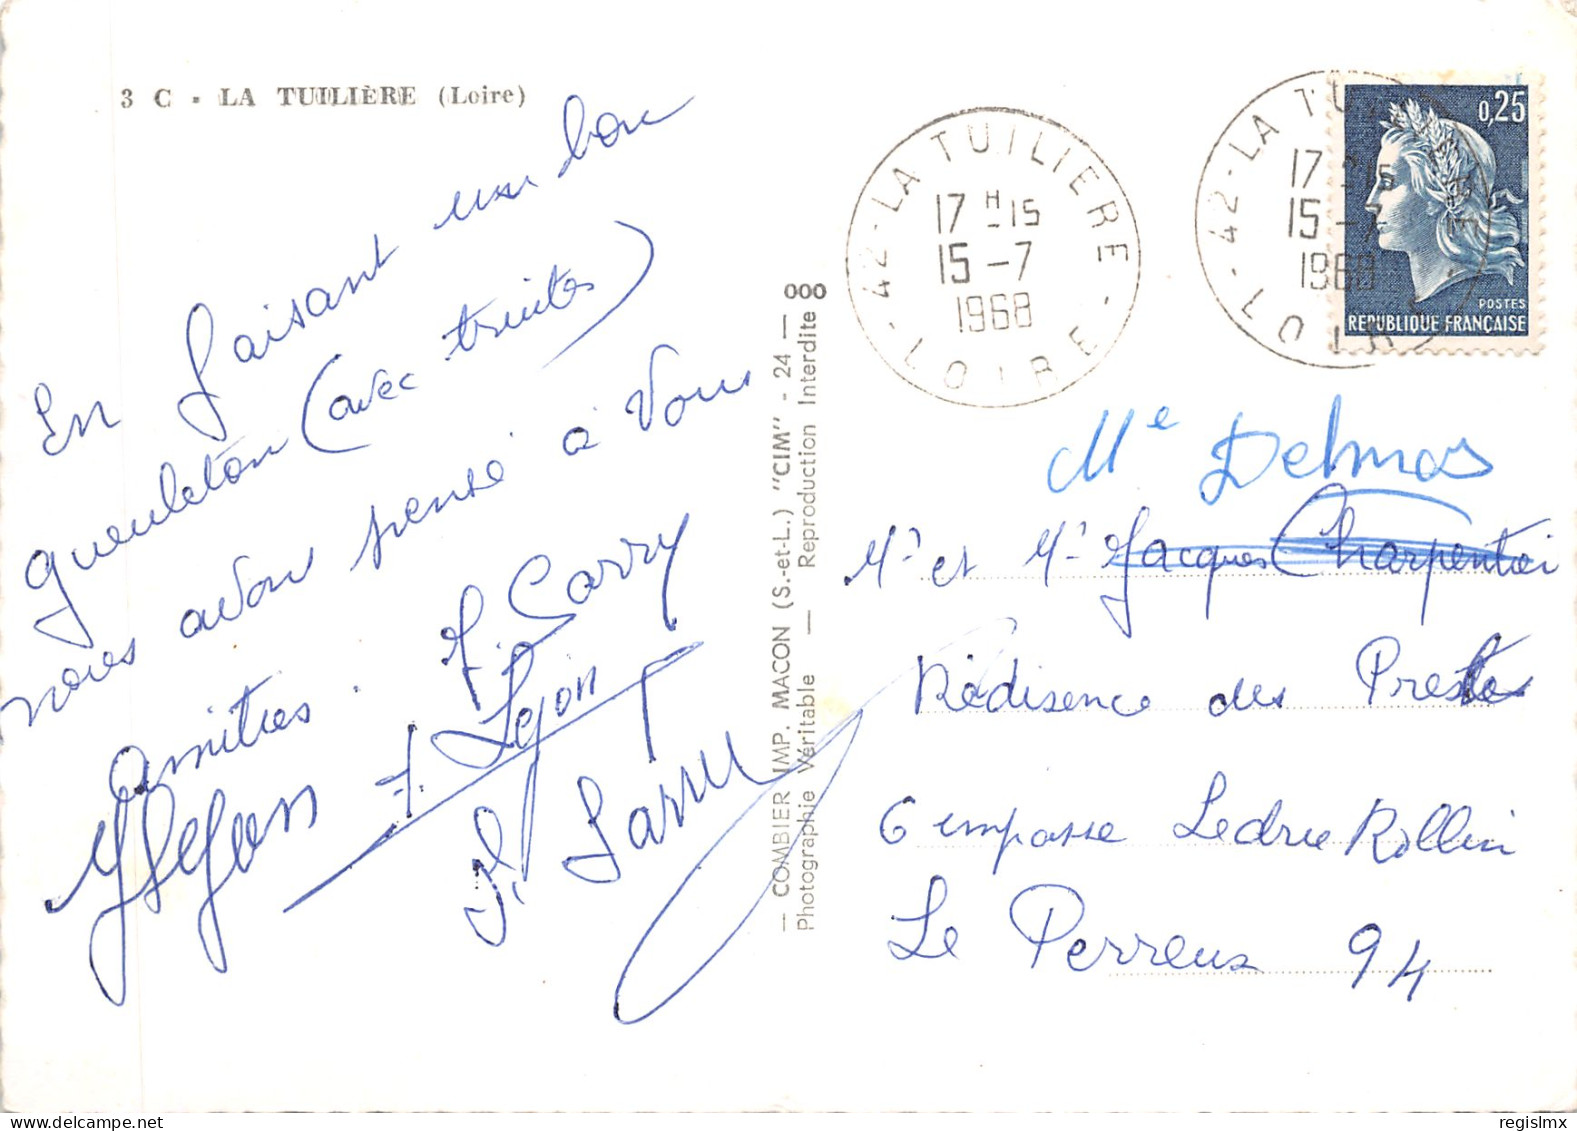 3 C - LA TUILIÈRE (Loire)
En faisant un bon
gueuleton (avec truites)
nous avons pensé à Vous
Amitiés.
COMBIER IMP. MACON (S.-et-L.) "CIM" - 24 —
Photographie Véritable — Reproduction Interdite
000
42 - LA TUILIERE - LOIRE -
17 H 15
15 - 7
1968
42 - LA TUILIERE - LOIRE -
17 H 15
15 - 7
1968
0,25
POSTES
REPUBLIQUE FRANÇAISE
Me Delmas
Mr et Mr Jacques Charpentier
Rédisence des Presles
6 impasse Ledru Rollin
Le Perreux 94
regislmx